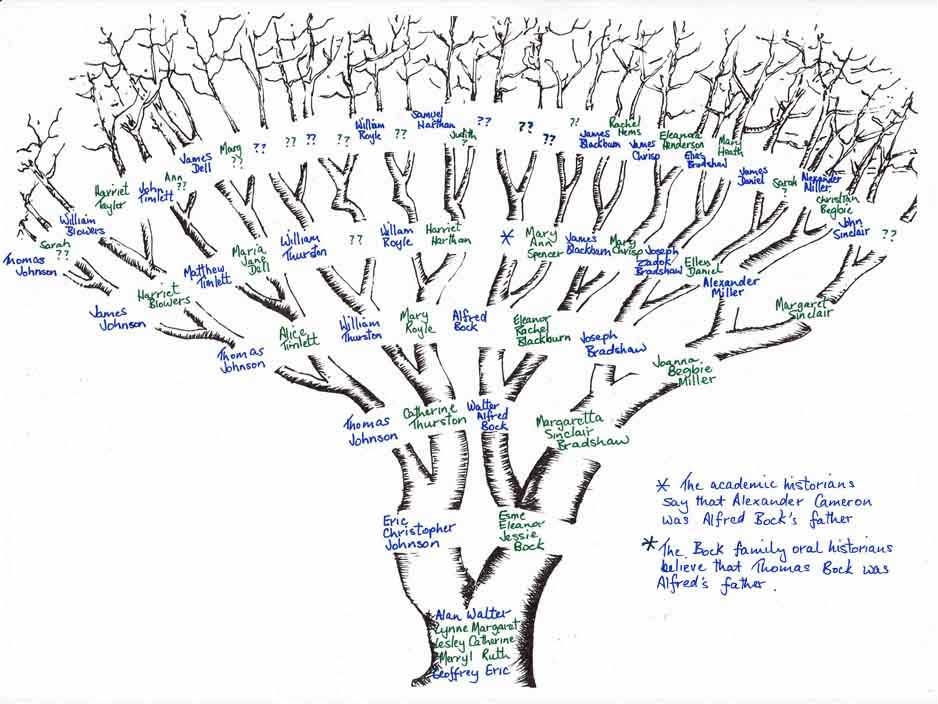 Samuel
Harthan
William
Royle
??
Judith
?
??
??
??
??
??
??
??
Rachel
Hems
James
Blackburn
James
Chrisp
Eleanora
Henderson
Elias
Bradshaw
Mary
Heath
James
Dell
Mary
??
Ann
??
John
Timlett
Harriet
Taylor
James
Daniel
Sarah
?
Alexander
Miller
Christian
Begbie
John
Sinclair
??
William
Blowers
Sarah
??
Thomas
Johnson
Harriet
Blowers
Matthew
Timlett
Maria
Jane
Dell
William
Thurston
??
William
Royle
Harriet
Harthan
*
Mary
Ann
Spencer
James
Blackburn
Mary
Chrisp
Joseph
Zadok
Bradshaw
Ellen
Daniel
Alexander
Miller
Margaret
Sinclair
James
Johnson
Thomas
Johnson
Alice
Timlett
William
Thurston
Mary
Royle
Alfred
Bock
Eleanor
Rachel
Blackburn
Joseph
Bradshaw
Joanna
Begbie
Miller
Thomas
Johnson
Catherine
Thurston
Walter
Alfred
Bock
Margaretta
Sinclair
Bradshaw
Eric
Christopher
Johnson
Esme
Eleanor
Jessie
Bock
* The academic historians
say that Alexander Cameron
was Alfred Bock's father
* The Bock family oral historians
believe that Thomas Bock was
Alfred's father.
Alan Walter
Lynne Margaret
Lesley Catherine
Merryl Ruth
Geoffrey Eric